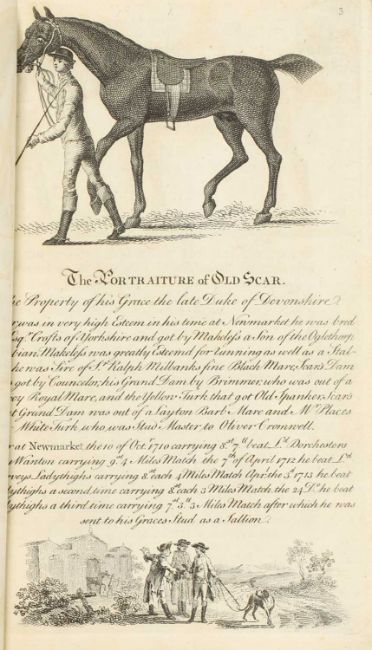 3
The PORTRAITURE of OLD SCAR.
Property of his Grace the late Duke of Devonshire.
was in very high Esteem in his time at Newmarket he was bred
Esqr. Crofts of Yorkshire and got by Makeless a Son of the Oglethorp
bian. Makeless was greatly Esteemd for running as well as a Stal-
he was Sire of Sr. Ralph Milbanks fine Black Mare; Scar's Dam
got by Councelor, his Grand Dam by Brimmer, who was out of a
Royal Mare, and the Yellow Turk that got Old Spanker. Scar's
Grand Dam was out of a Layton Barb Mare and Mr. Places
White Turk who was Stud Master to Oliver Cromwell.
at Newmarket the 10 of Octr. 1710 carrying 8st. 7lb. beat Ld. Dorchesters
Wanton carrying 9st. 4 Miles Match. the 7th. of April 1712 he beat Ld.
veys Ladythighs carrying 8st. each 4 Miles Match. Apr. the 3d. 1713 he beat
dythighs a second time carrying 8st. each 3 Miles Match. the 24 Do. he beat
dythighs a third time carrying 7st. 3 Miles Match after which he was
sent to his Graces Stud as a Stallion.